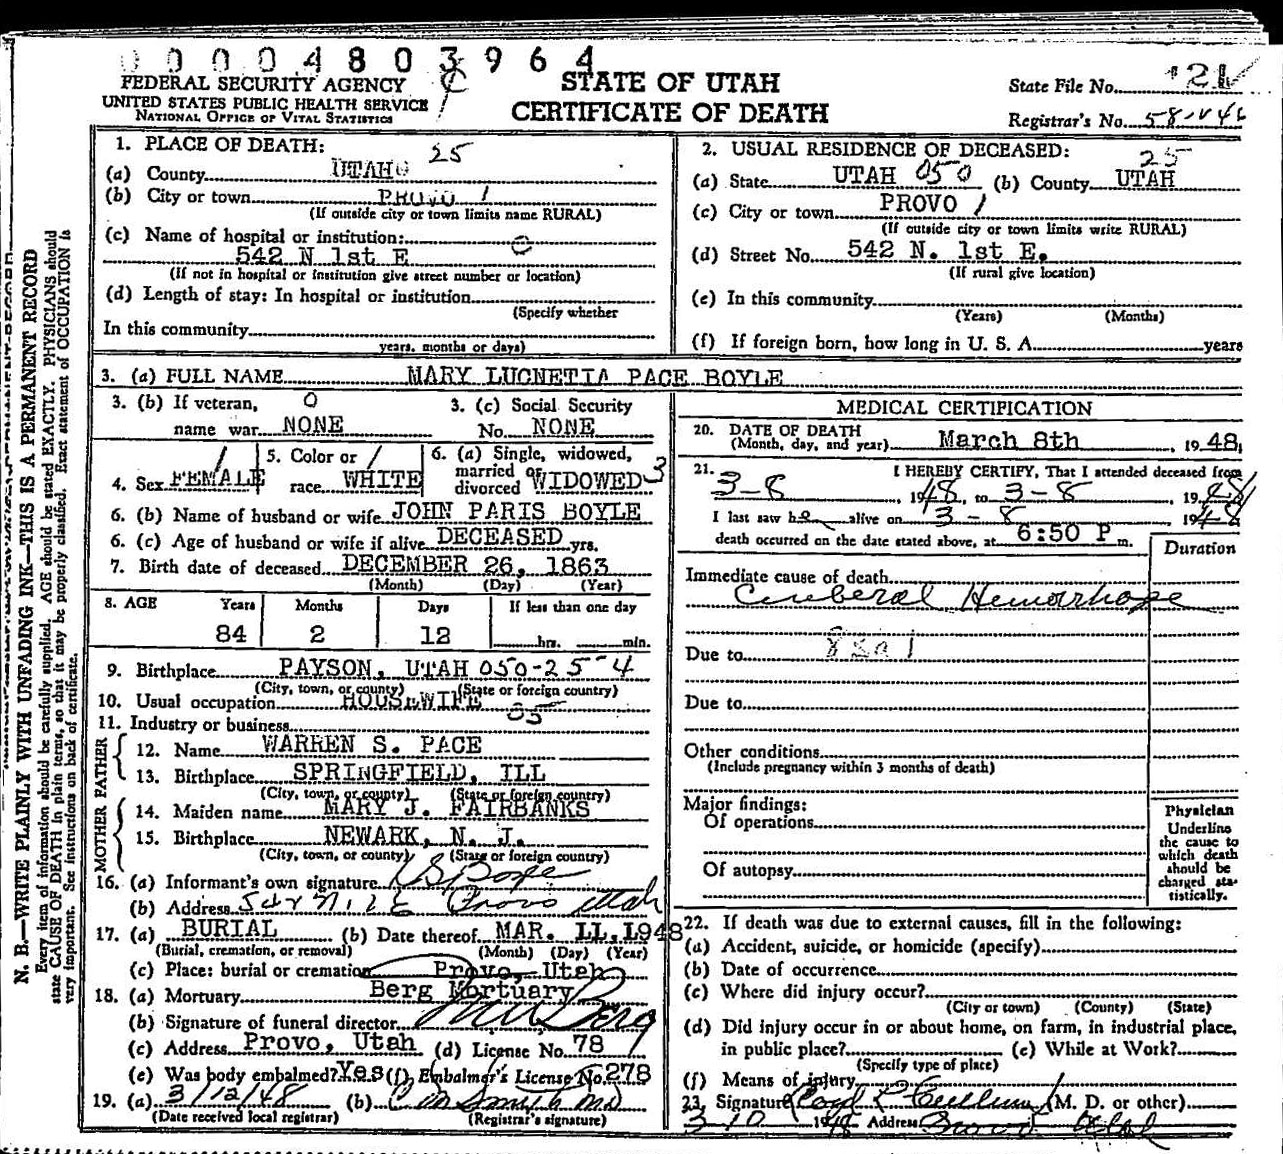 0000480 3964
FEDERAL SECURITY AGENCY
UNITED STATES PUBLIC HEALTH SERVICE
NATIONAL OFFICE OF VITAL STATISTICS
STATE OF UTAH
CERTIFICATE OF DEATH
State File No. 121
Registrar's No. 58-
N. B.—WRITE PLAINLY WITH UNFADING INK—THIS IS A PERMANENT RECORD
Every item of information should be carefully supplied. AGE should be stated EXACTLY. PHYSICIANS should
state CAUSE OF DEATH in plain terms, so that it may be properly classified. Exact statement of OCCUPATION is
very important. See instructions on back of certificate.
1. PLACE OF DEATH: 25
(a) County UTAH
(b) City or town PROVO 1
(If outside city or town limits name RURAL)
(c) Name of hospital or institution: 0
542 N 1st E
(If not in hospital or institution give street number or location)
(d) Length of stay: In hospital or institution
(Specify whether
In this community
years, months or days)
2. USUAL RESIDENCE OF DECEASED: 25
(a) State UTAH 050 (b) County UTAH
(c) City or town PROVO 1
(If outside city or town limits write RURAL)
(d) Street No. 542 N. 1st E.
(If rural give location)
(e) In this community
(Years) (Months)
(f) If foreign born, how long in U. S. A. years
3. (a) FULL NAME MARY LUCNETIA PACE BOYLE
3. (b) If veteran, 0
name war NONE
3. (c) Social Security
No. NONE
4. Sex FEMALE 1
5. Color or 1
race WHITE
6. (a) Single, widowed,
married or
divorced WIDOWED 3
6. (b) Name of husband or wife JOHN PARIS BOYLE
6. (c) Age of husband or wife if alive DECEASED yrs.
7. Birth date of deceased DECEMBER 26, 1863
(Month) (Day) (Year)
8. AGE Years Months Days If less than one day
84 2 12 hrs. min.
9. Birthplace PAYSON, UTAH 050-25-4
(City, town, or county) (State or foreign country)
10. Usual occupation HOUSEWIFE
11. Industry or business
FATHER
12. Name WARREN S. PACE
13. Birthplace SPRINGFIELD, ILL
(City, town, or county) (State or foreign country)
MOTHER
14. Maiden name MARY J. FAIRBANKS
15. Birthplace NEWARK, N. J.
(City, town, or county) (State or foreign country)
16. (a) Informant's own signature
(b) Address Provo Utah
17. (a) BURIAL (b) Date thereof MAR. 11, 1948
(Burial, cremation, or removal) (Month) (Day) (Year)
(c) Place: burial or cremation Provo, Utah
18. (a) Mortuary Berg Mortuary
(b) Signature of funeral director Berg
(c) Address Provo, Utah (d) License No. 78
(e) Was body embalmed? Yes (f) Embalmer's License No. 278
19. (a) 3/12/48 (b) Smith MD
(Date received local registrar) (Registrar's signature)
MEDICAL CERTIFICATION
20. DATE OF DEATH
(Month, day, and year) March 8th 1948
21. I HEREBY CERTIFY, That I attended deceased from
3-8, 1948, to 3-8, 1948
I last saw her alive on 3-8 1948
death occurred on the date stated above, at 6:50 P m.
Duration
Immediate cause of death
Cerebral Hemorrhage
Due to
Due to
Other conditions
(Include pregnancy within 3 months of death)
Major findings:
Of operations
Of autopsy
Physician
Underline
the cause to
which death
should be
charged sta-
tistically.
22. If death was due to external causes, fill in the following:
(a) Accident, suicide, or homicide (specify)
(b) Date of occurrence
(c) Where did injury occur?
(City or town) (County) (State)
(d) Did injury occur in or about home, on farm, in industrial place,
in public place? (e) While at Work?
(Specify type of place)
(f) Means of injury
23. Signature (M. D. or other)
3-10 1948 Address Provo Utah